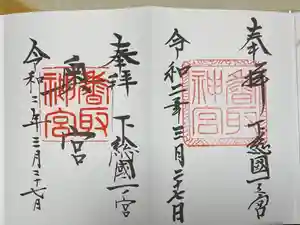 奉拝 下総國一宮
香取神宮
令和二年三月二十七日
奉拝 下総國一宮
奥宮
香取神宮
令和二年三月二十七日